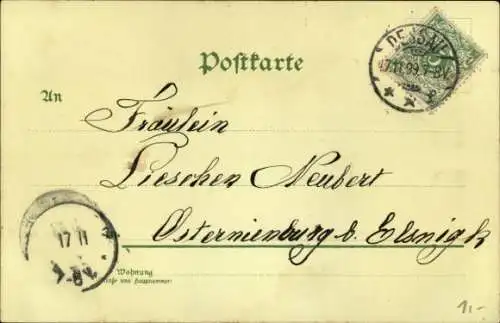 Postkarte
DESSAU
17.11.99. 7-8V.
An
Fräulein
Lieschen Neubert
Osternienburg b. Elsnigk
17 11
7-8V.
Wohnung
(Straße und Hausnummer)
11.-